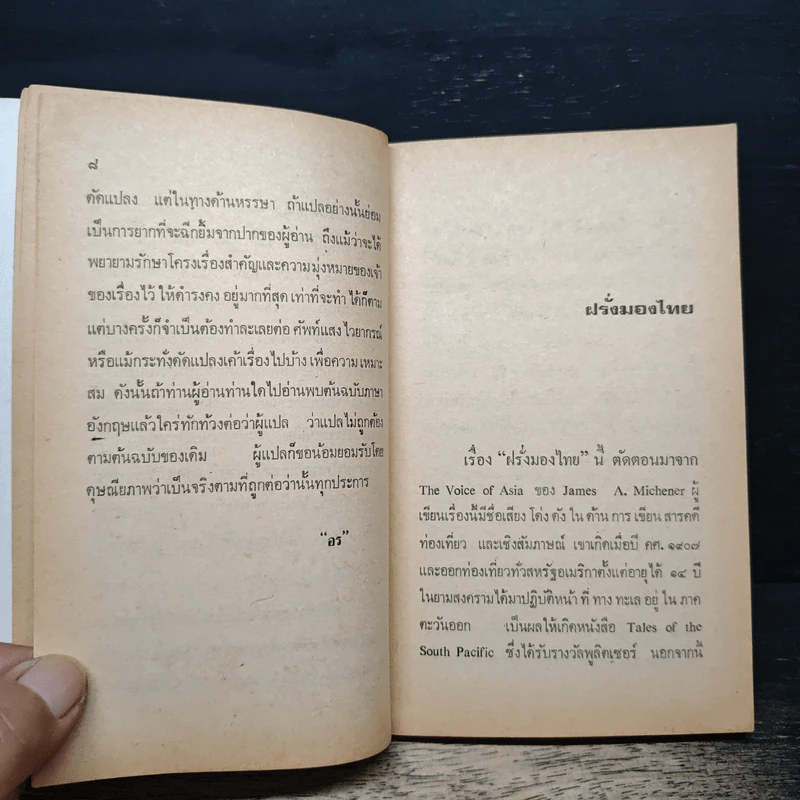 ๘
ดัดแปลง แต่ในทางด้านหรรษา ถ้าแปลอย่างนั้นย่อม
เป็นการยากที่จะฉีกยิ้มจากปากของผู้อ่าน ถึงแม้ว่าจะได้
พยายามรักษาโครงเรื่องสำคัญและความมุ่งหมายของเจ้า
ของเรื่องไว้ ให้ดำรงคง อยู่มากที่สุด เท่าที่จะทำ ได้ก็ตาม
แต่บางครั้งก็จำเป็นต้องทำละเลยต่อ ศัพท์แสง ไวยากรณ์
หรือแม้กระทั่งดัดแปลงเค้าเรื่องไปบ้าง เพื่อความ เหมาะ
สม ดังนั้นถ้าท่านผู้อ่านท่านใดไปอ่านพบต้นฉบับภาษา
อังกฤษแล้วใคร่ทักท้วงต่อว่าผู้แปล ว่าแปลไม่ถูกต้อง
ตามต้นฉบับของเดิม ผู้แปลก็ขอน้อมยอมรับโดย
ดุษณียภาพว่าเป็นจริงตามที่ถูกต่อว่านั้นทุกประการ
“อร”
ฝรั่งมองไทย
เรื่อง “ฝรั่งมองไทย” นี้ ตัดตอนมาจาก
The Voice of Asia ของ James A. Michener ผู้
เขียนเรื่องนี้มีชื่อเสียง โด่ง ดัง ใน ด้าน การ เขียน สารคดี
ท่องเที่ยว และเชิงสัมภาษณ์ เขาเกิดเมื่อปี คศ. ๑๙๐๗
และออกท่องเที่ยวทั่วสหรัฐอเมริกาตั้งแต่อายุได้ ๑๔ ปี
ในยามสงครามได้มาปฏิบัติหน้า ที่ ทาง ทะเล อยู่ ใน ภาค
ตะวันออก เป็นผลให้เกิดหนังสือ Tales of the
South Pacific ซึ่งได้รับรางวัลพูลิตเซอร์ นอกจากนี้